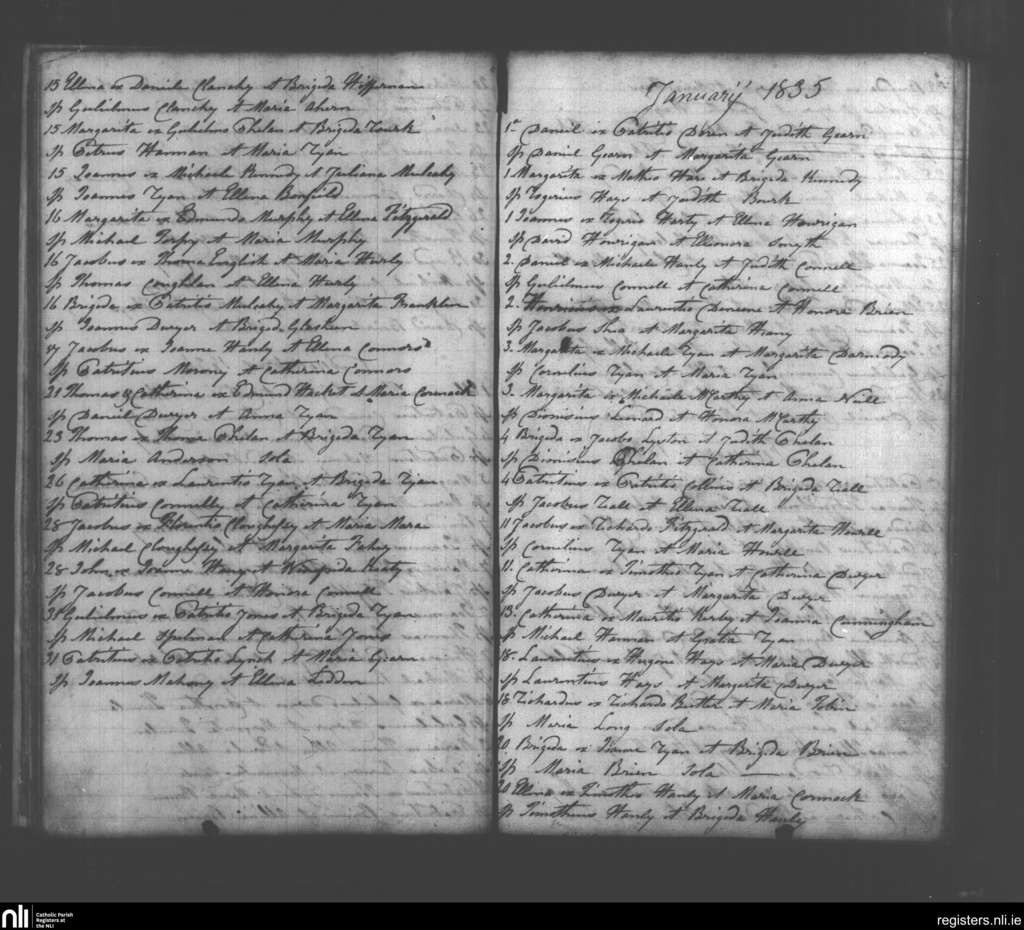 15 Ellena ex Daniele Clanchy et Brigida Hifferman
Sp Gulielmus Clanchy et Maria Ahern
15 Margarita ex Gulielmo Phelan et Brigida Tourk
Sp Petrus Hannan et Maria Ryan
15 Joannes ex Michaele Kennedy et Juliana Mulcahy
Sp Joannes Ryan et Ellena Bonfield
16 Margarita ex Edmundo Murphy et Ellena Fitzgerald
Sp Michael Torpy et Maria Murphy
16 Jacobus ex Thoma English et Maria Hurly
Sp Thomas Coughlan et Ellena Hurly
16 Brigida ex Patritio Mulcahy et Margarita Franklin
Sp Joannes Dwyer et Brigida Gleeson
Jacobus ex Joanne Hanly et Ellena Connors
Sp Patritius Morony et Catherina Connors
21 Thomas & Catherina ex Edmund Hacket et Maria Cormack
Sp Daniel Dwyer et Anna Ryan
23 Thomas ex Thoma Phelan et Brigida Ryan
Sp Maria Anderson Sola
26 Catherina ex Laurentio Ryan et Brigida Ryan
Sp Patritius Connelly et Catherina Ryan
28 Jacobus ex Florentio Cloughesy et Maria Mara
Sp Michael Cloughesy et Margarita Fahey
28 John ex Joanne Hany et Winifrida Hearty
Sp Jacobus Connell et Honora Connell
31 Gulielmus ex Patritio Jones et Brigida Ryan
Sp Michael Spelman et Catherina Jones
31 Patritius ex Patritio Lynch et Maria Gearn
Sp Joannes Mahony et Ellena Liddon
January 1835
1st Daniel ex Patritio Doren et Judith Gearn
Sp Daniel Gearn et Margarita Gearn
1 Margarita ex Mathio Hays et Brigida Kennedy
Sp Rogerius Hays et Judith Bourk
1 Joannes ex Rogerio Harty et Ellena Hourigan
Sp David Hourigan et Elleanora Smyth
2. Daniel ex Michaele Hanly et Judith Connell
Sp Gulielmus Connell et Catherina Connell
2. Henricus ex Laurentio Dineene et Honora Brien
Sp Jacobus Shea et Margarita Hrany
3. Margarita ex Michaele Ryan et Margarita Darmody
Sp Cornelius Ryan et Maria Ryan
3. Margarita ex Michaele McCarthy et Anna Neill
Sp Dionisius Lenard et Honora McCarthy
4 Brigida ex Jacobo Lyston et Judith Phelan
Sp Dionisius Phelan et Catherina Phelan
4 Patritius ex Patritio Collins et Brigida Ziall
Sp Jacobus Ziall et Ellena Ziall
11 Jacobus ex Richardo Fitzgerald et Margarita Howell
Sp Cornelius Ryan et Maria Howell
11. Catherina ex Timothio Ryan et Catherina Dwyer
Sp Jacobus Dwyer et Margarita Dwyer
13. Catherina ex Mauritio Kirby et Joanna Cunningham
Sp Michael Hannan et Gratia Ryan
18. Laurentius ex Hugone Hays et Maria Dwyer
Sp Laurentius Hays et Margarita Dwyer
18 Richardus ex Richardo Butler et Maria Tobin
Sp Maria Long Sola
20. Brigida ex Joanne Ryan et Brigida Brien
Sp Maria Brien Sola
20 Ellena ex Timothio Hanly et Maria Cormack
Sp Timothius Hanly et Brigida Hanly
nli
Catholic Parish
Registers at
the NLI
registers.nli.ie